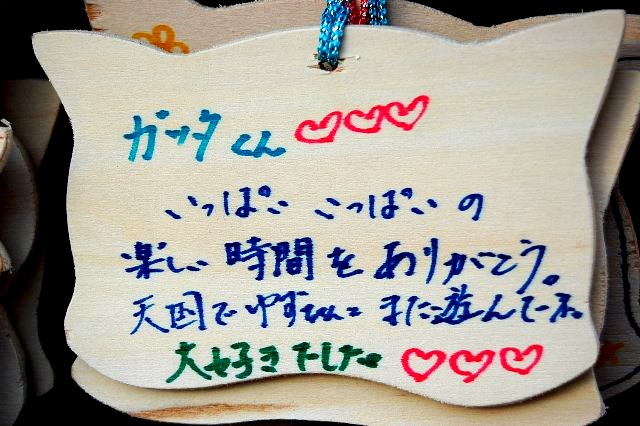 ガッタくん♡♡♡
いっぱい いっぱいの
楽しい時間をありがとう。
天国でゆずちゃんとまた遊んでてネ。
大好きでした。♡♡♡